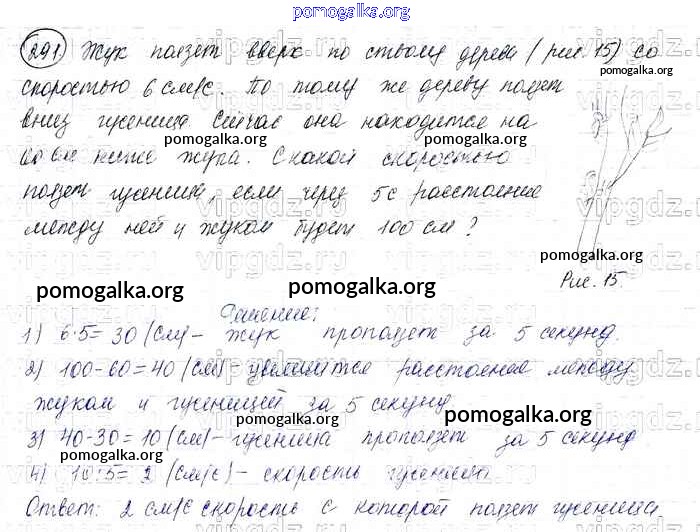 pomogalka.org
291 Жук ползет вверх по стволу дерева (рис. 15) со
pomogalka.org
скоростью 6 см/с. По тому же дереву ползет
pomogalka.org
вниз гусеница. Сейчас она находится на
pomogalka.org
60 см ниже жука. С какой скоростью
pomogalka.org
ползет гусеница, если через 5с расстояние
между ней и жуком будет 100 см?
pomogalka.org
pomogalka.org pomogalka.org
Рис. 15.
Решение:
1) 6·5=30 (см) – жук проползет за 5 секунд.
2) 100-60=40 (см) – увеличится расстояние между
жуком и гусеницей за 5 секунд
pomogalka.org
3) 40-30=10 (см) – гусеница проползет за 5 секунд
pomogalka.org
4) 10:5=2 (см/с) – скорость гусеницы.
pomogalka.org
Ответ: 2 см/с скорость с которой ползет гусеница